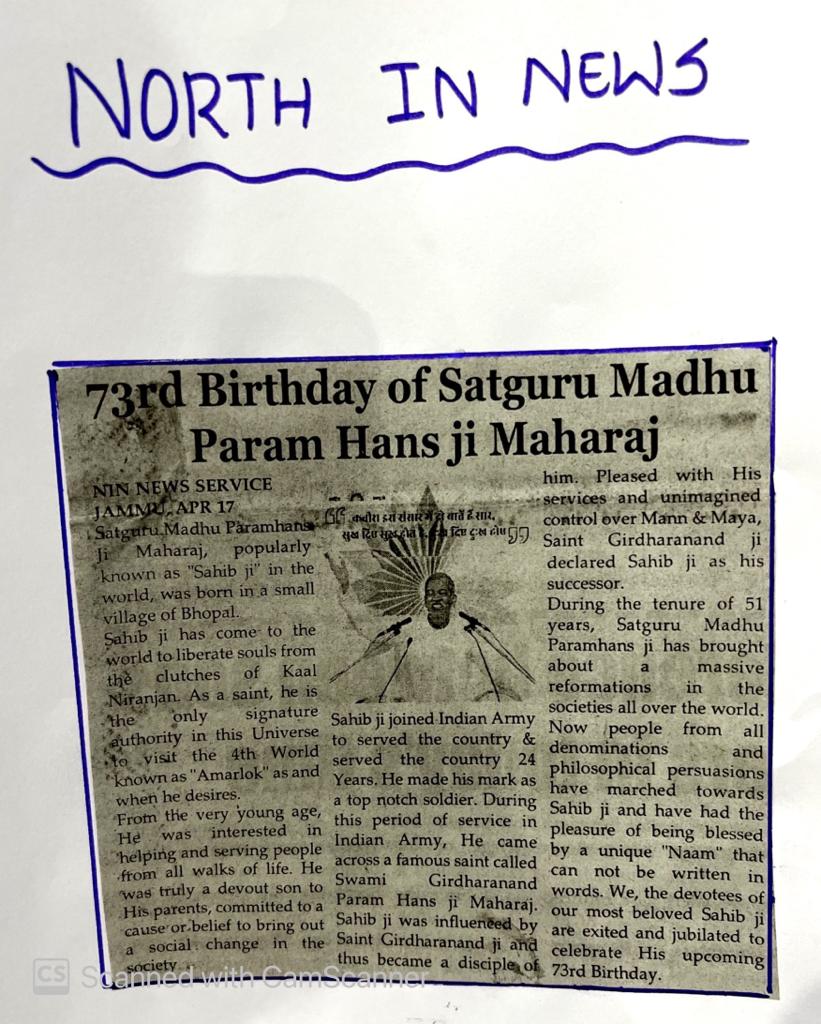 NORTH IN NEWS
73rd Birthday of Satguru Madhu
Param Hans ji Maharaj
NIN NEWS SERVICE
JAMMU, APR 17
Satguru Madhu Paramhans
Ji Maharaj, popularly
known as "Sahib ji" in the
world, was born in a small
village of Bhopal.
Sahib ji has come to the
world to liberate souls from
the clutches of Kaal
Niranjan. As a saint, he is
the only signature
authority in this Universe
to visit the 4th World
known as "Amarlok" as and
when he desires.
From the very young age,
He was interested in
helping and serving people
from all walks of life. He
was truly a devout son to
His parents, committed to a
cause or belief to bring out
a social change in the
society
कबीरा इस संसार में दो बातें हैं सार,
सुख दिए सुख होत है, दुःख दिए दुःख होय
Sahib ji joined Indian Army
to served the country &
served the country 24
Years. He made his mark as
a top notch soldier. During
this period of service in
Indian Army, He came
across a famous saint called
Swami Girdharanand
Param Hans ji Maharaj.
Sahib ji was influenced by
Saint Girdharanand ji and
thus became a disciple of
him. Pleased with His
services and unimagined
control over Mann & Maya,
Saint Girdharanand ji
declared Sahib ji as his
successor.
During the tenure of 51
years, Satguru Madhu
Paramhans ji has brought
about a massive
reformations in the
societies all over the world.
Now people from all
denominations and
philosophical persuasions
have marched towards
Sahib ji and have had the
pleasure of being blessed
by a unique "Naam" that
can not be written in
words. We, the devotees of
our most beloved Sahib ji
are exited and jubilated to
celebrate His upcoming
73rd Birthday.
CS Scanned with CamScanner